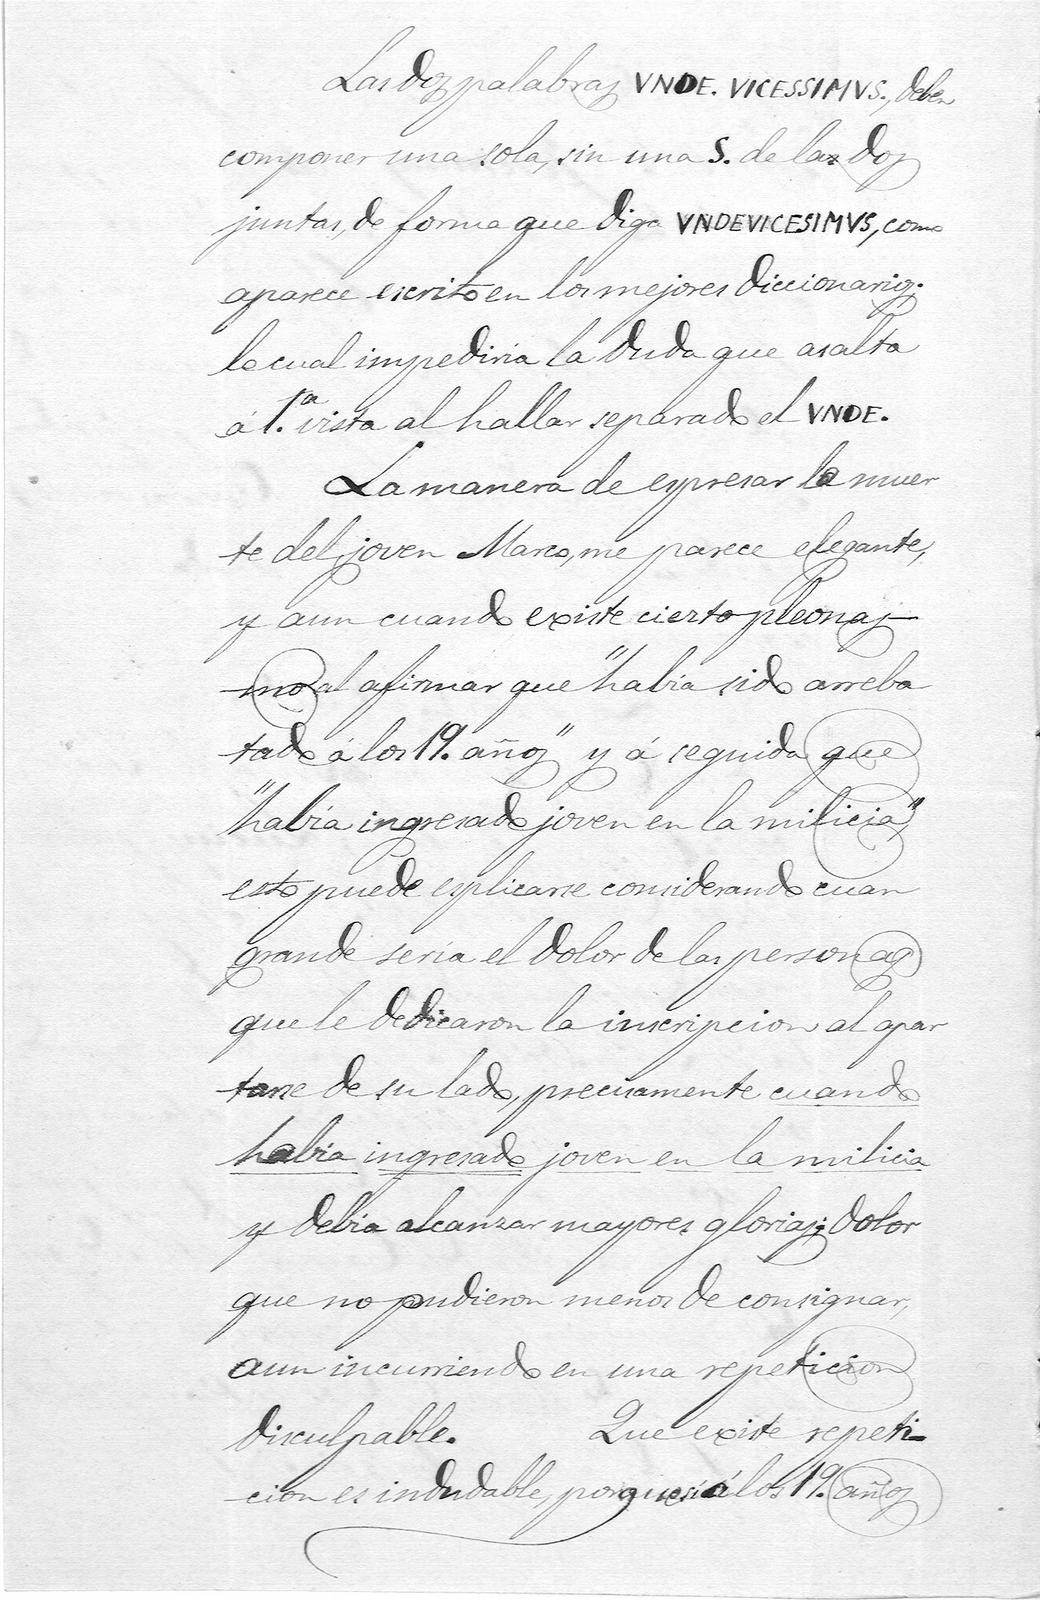 Las dos palabras VNDE. VICESSIMVS., deben
componer una sola, sin una S. de las dos
juntas, de forma que diga VNDEVICESIMVS, como
aparece escrito en los mejores diccionarios.
lo cual impediria la duda que asalta
á 1.ª vista al hallar separado el VNDE.
La manera de espresar la muer
te del joven Marco, me parece elegante,
y aun cuando existe cierto pleonas-
mo al afirmar que "habia sido arreba
tado á los 19. años" y á seguida que
"habia ingresado joven en la milicia"
esto puede esplicarse considerando cuan
grande seria el dolor de las personas
que le dedicaron la inscripcion al apar
tarse de su lado, precisamente cuando
habia ingresado joven en la milicia
y debia alcanzar mayores glorias; dolor
que no pudieron menos de consignar,
aun incurriendo en una repeticion
disculpable. Que existe repeti-
cion es indudable, porque si á los 19. años